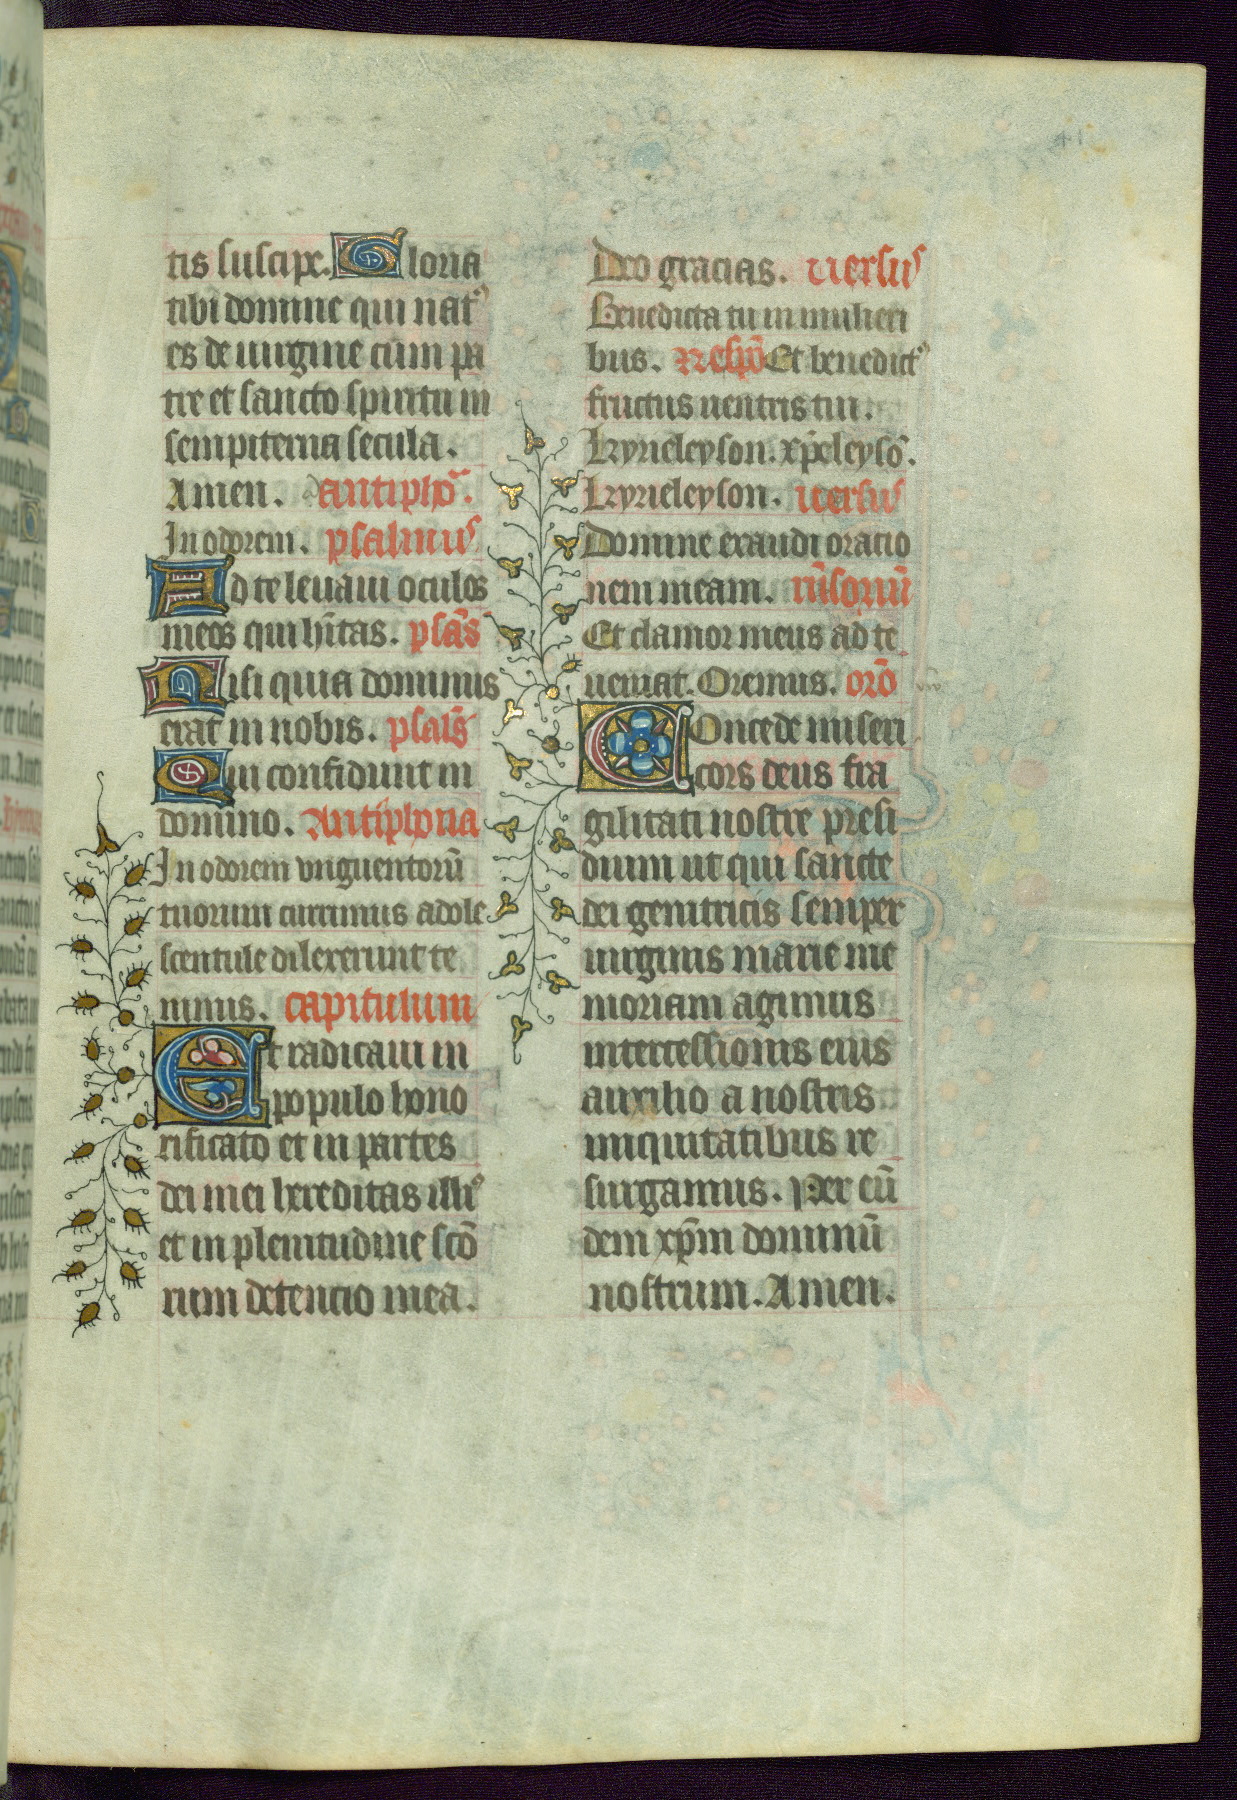 tis suscipe. Gloria
tibi domine qui natꝰ
es de uirgine cum pa
tre et sancto spiritu in
sempiterna secula.
Amen. antipho᷑.
In odorem. psalmus
Ad te leuaui oculos
meos qui hītas. psās
Nisi quia dominus
erat in nobis. psalꝫ
Qui confidunt in
domino. Antiphona
In odorem vnguentorū
tuorum currimus adole
scentule dilexerunt te
nimis. capitulum
Et radicaui in
populo hono
rificato et in partes
dei mei hereditas illiꝰ
et in plenitudine scō
rum detencio mea.
Deo gracias. uersus
Benedicta tu in mulieri
bus. Respō Et benedictꝰ
fructus uentris tui.
Kyrieleyson. xp̄eleysō.
Kyrieleyson. uersus
Domine exaudi oracio
nem meam. rn̄soriū
Et clamor meus ad te
ueniat. Oremus. orō
Concede miseri
cors deus fra
gilitati nostre presi
dium ut qui sancte
dei genitricis semper
uirginis marie me
moriam agimus
intercessionis eius
auxilio a nostris
iniquitatibus re
surgamus. Per eū
dem xp̄m dominū
nostrum. Amen.